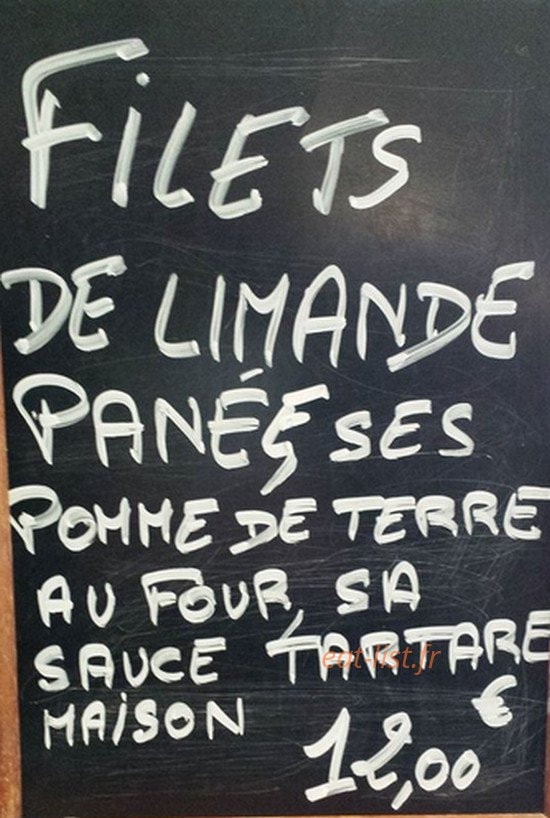 FILETS
DE LIMANDE
PANÉE, SES
POMME DE TERRE
AU FOUR, SA
SAUCE TARTARE
eat-list.fr
MAISON
12,00 €